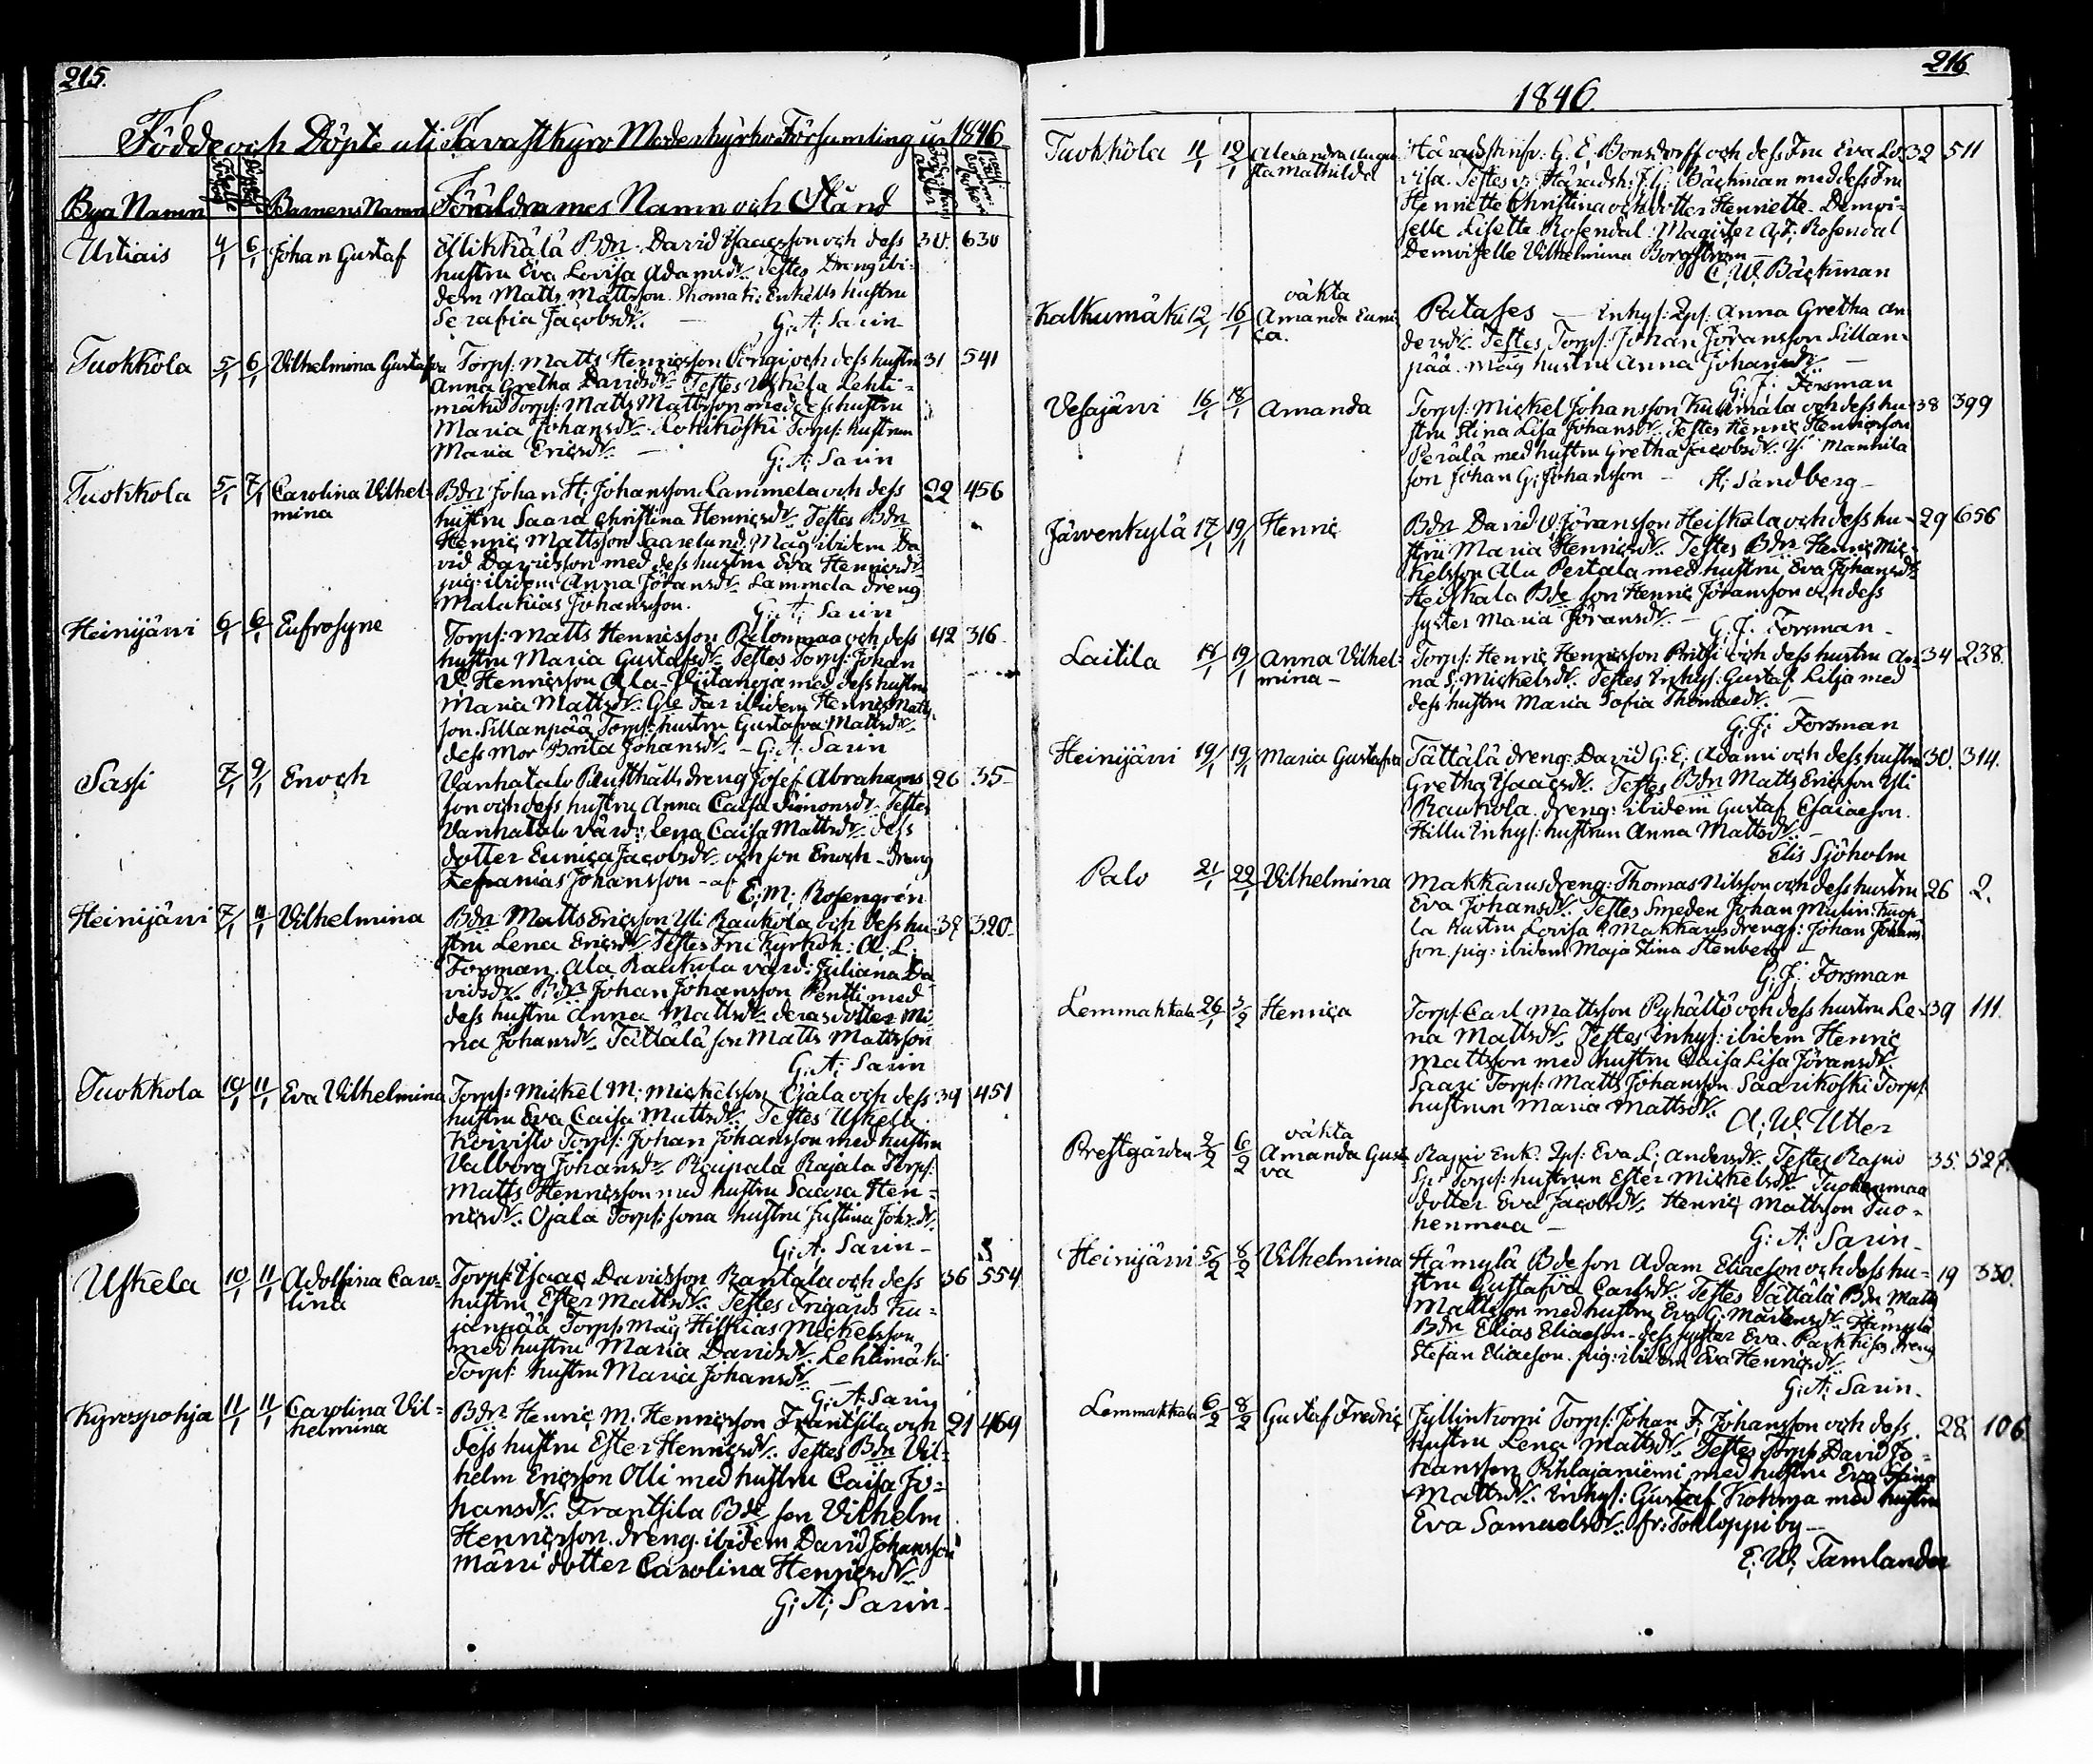 215.
Födde och Döpte uti Tavastkyro Moderkyrko Församling år 1846
Bya Namn Barnens Namn Föräldrarnes Namn och Stånd
Urtiais 4/1 6/1 Johan Gustaf Mikkälä Bdn David Isaacsson och dess 30. 630
hustru Eva Lovisa Adamsdr. Testes Dreng ibi-
dem Matts Mattsson. Thomas: Enkells hustru
Serafia Jacobsdr. — G. A. Sarin
Tuokkola 5/1 6/1 Vilhelmina Gustafva Torp: Matts Henricsson och dess hustru 31 541
Anna Gretha Davidsdr. Testes Uskela Lehti-
mäki Torp: Matts Mattsson med dess hustru
Maria Johansdr. Torp: hustrun
Maria Ericsdr. — G. A. Sarin
Tuokkola 5/1 7/1 Carolina Vilhel- Bdn Johan H. Johansson Lammela och dess 29 456
mina hustru Saara Christina Henricsdr. Testes Bdn
Henric Mattsson Saarelund. Måg ibidem Da-
vid Davidsson med dess hustru Eva Henricsdr
pig: ibidem Anna Göransdr. Lammela dreng
Malakias Johansson. G. A. Sarin
Heinijärvi 6/1 6/1 Eufrosyne Torp: Matts Henricsson Palonmaa och dess 42 316
hustru Maria Gustafsdr. Testes Torp: Johan
Henricsson Ala-Viitanoja med dess hustru
Maria Mattsdr. Gle Far ibidem Henric Matts-
son. Sillanpää Torp: hustru Gustafva Mattsdr.
dess Mor Brita Johansdr. — G. A. Sarin
Sassi 7/1 9/1 Enoch Vanhatalo Rusthålls dreng Josef Abrahams 26 35
son och dess hustru Anna Caisa Simonsdr. Testes
Vanhatalo värd: Lena Caisa Mattsdr. dess
dotter Eunica Jacobsdr. och son Enoch - dreng
Zefanias Johansson - af E. M. Rosengrén
Heinijärvi 7/1 11/1 Vilhelmina Bdn Matts Ericsson Yli Raukola och dess hu- 37 320
stru Lena Ericsdr. Testes Fru Kyrkoh: A. L.
Forsman. Ala Raukola värd: Juliana Da-
vidsdr. Bdn Johan Johansson Pentti med
dess hustru Anna Mattsdr. deras dotter Mi-
na Johansdr. Tättälä son Matts Mattsson
G. A. Sarin
Tuokkola 10/1 11/1 Eva Vilhelmina Torp: Mickel M. Mickelsson Ojala och dess 34 451
hustru Eva Caisa Mattsdr. Testes Uskela
Koivisto Torp: Johan Johansson med hustru
Valborg Johansdr. Raipala Rajala Torp:
Matts Henricsson med hustru Saara Hen-
ricsdr. Ojala Torp: sons hustru Justina Johsdr.
G. A. Sarin
Uskela 10/1 11/1 Adolfina Caro- Torp: Isaac Davidsson Rantala och dess 36 554
lina hustru Ester Mattsdr. Testes Frigårds Ku-
janpää Torp: Måg Hiskias Mickelsson
med hustru Maria Davidsdr. Lehtimäki
Torp: hustru Maria Johansdr.
G. A. Sarin
Kyrospohja 11/1 11/1 Carolina Vil- Bdn Henric M. Henricsson Frantsila och 21 464
helmina dess hustru Ester Henricsdr. Testes Bdn Vil-
helm Ericsson Olli med hustru Caisa Jo-
hansdr. Frantsila Bde son Vilhelm
Henricsson. dreng. ibidem David Johansson
Märri dotter Carolina Henricsdr
G. A. Sarin
216
1846.
Tuokkola 11/1 12/1 Alexandra Augu- Häradskrifv: G. E. Bonsdorff och dess Fru Eva Lo- 32 511
sta Mathilda visa. Testes v: Häradsh: J. G. Bäckman med dess Fru
Henriette Christina och dotter Henriette. Demoi-
selle Lisette Rosendal. Magister A. F. Rosendal
Demoiselle Vilhelmina Borgström —
C. W. Bäckman
Kalkumäki 12/1 16/1 oäkta Amanda Euni- Patases — Inhys: Qps: Anna Gretha An
ca. dersdr. Testes Torp: Johan Göransson Sillan-
pää. måg hustru Anna Johansdr. —
G. J. Forsman
Vesajärvi 16/1 18/1 Amanda Torp: Mickel Johansson och dess hu- 38 399
stru Stina Lisa Johansdr. Testes Henric Henricsson
Perälä med hustru Gretha Jacobsdr. Y: Mannila
son Johan G. Johansson — H. Sandberg
Järvenkylä 17/1 19/1 Henric Bdn David Göransson Heiskala och dess hu- 29 656
stru Maria Henricsdr. Testes Bdn Henric Mic-
kelsson Ala Pertala med hustru Eva Johansdr.
Heiskala Bde son Henric Göransson och dess
syster Maria Göransdr. — G. J. Forsman
Laitila 18/1 19/1 Anna Vilhel- Torp: Henric Henricsson Pritsi och dess hustru An- 34 238.
mina — na S. Mickelsdr. Testes Inhys: Gustaf Lilja med
dess hustru Maria Sofia Thomaedr.
G. J. Forsman
Heinijärvi 19/1 19/1 Maria Gustafva Tättälä dreng: David G. E. Adami och dess hustru 30. 314.
Gretha Isaacsdr. Testes Bdn Matts Ericsson Yli
Raukola. dreng: ibidem Gustaf Esaiaeson.
Hillu Inhys: hustrun Anna Mattsdr. —
Elis Sjöholm
Palo 21/1 22/1 Vilhelmina Makkarus dreng: Thomas Nilsson och dess hustru 26 2.
Eva Johansdr. Testes Smeden Johan Malin. Kuop-
la hustru Lovisa. Makkarus dreng: Johan Johans-
son. pig: ibidem Maja Stina Stenberg
G. J. Forsman
Lemmakkala 26/1 3/2 Henrica Torp: Carl Mattsson Pyhältö och dess hustru Le- 39 111.
na Mattsdr. Testes Inhys: ibidem Henric
Mattsson med hustru Caisa Lisa Göransdr.
Saari Torp: Matts Johansson Saarikoski Torp:
hustrun Maria Mattsdr.
A. W. Utter
Prestgården 2/2 6/2 oäkta Amanda Gust- Rajnio Enk. Qps: Eva L. Andersdr. Testes Rajnio 35. 527.
va Torp: hustrun Ester Mickelsdr. Tuohenmaa
dotter Eva Jacobsdr. Henric Mattsson Tuo-
henmaa — G. A. Sarin
Heinijärvi 5/2 8/2 Vilhelmina Hämylä Bde son Adam Eliaeson och dess hu- 19 330.
stru Gustafva Carlsdr. Testes Tättälä Bdn Matts
Mattsson med hustru Eva G. Mårtensdr. Hämylä
Bdn Elias Eliaeson - dess syster Eva. Parkkisas dreng
Stefan Eliaeson. pig: ibidem Eva Henricsdr.
G. A. Sarin
Lemmakkala 6/2 8/2 Gustaf Fredric Jyllinkorpi Torp: Johan F. Johansson och dess 28. 106.
hustru Lena Mattsdr. Testes Torp: David Jo-
hansson Pihlajaniemi med hustru Eva Stina
Mattsdr. Inhys: Gustaf Kohma med hustru
Eva Samuelsdr. fr: Tokloppi by —
E. W. Tamlander